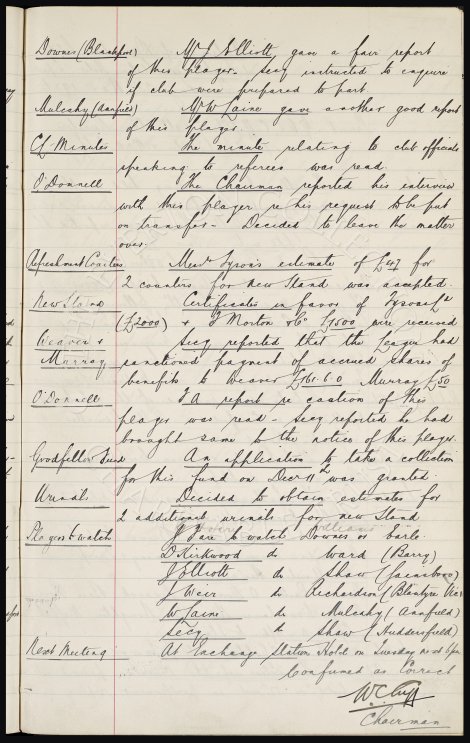 Downes (Blackpool) Mr J Elliott gave a fair report
of this player. Secy instructed to enquire
if club were prepared to part.
Mulcahy (Annfield) Mr W Laine gave another good report
of this player.
CL Minutes The minute relating to club officials
speaking to referees was read.
O'Donnell The Chairman reported his interview
with this player re his request to be put
on transfer - Decided to leave the matter
over.
Refreshment Counters Messrs Tyson's estimate of £47 for
2 counters for New Stand was accepted.
New Stand Certificates in favor of Tysons Ld
(£2000) & F Morton & Co £1500 were received
Weaver & Secy reported that the League had
Murray sanctioned payment of accrued shares of
benefits to Weaver £161.6.0 Murray £50
O'Donnell FA report re caution of this
player was read - Secy reported he had
brought same to the notice of this player.
Goodfellow Fund An application to take a collection
for this fund on Decr 11th was granted.
Urinals Decided to obtain estimates for
2 additional urinals for new Stand
Players to watch J Fare to watch Downes or Earle.
D Kirkwood do Ward (Barry)
J Elliott do Shaw (Gainsboro)
J Weir do Richardson (Blantyre Vic)
W Laine do Mulcahy (Annfield)
Secy do Shaw (Huddersfield)
Next Meeting At Exchange Station Hotel on Tuesday next
Confirmed as Correct
W.C. Cuff
Chairman